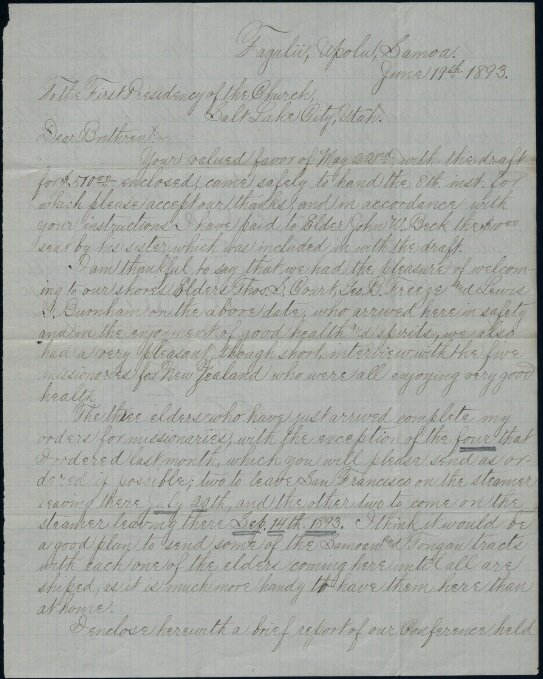 Fagalii, Upolu, Samoa.
June 19th 1893.
To the First Presidency of the Church,
Salt Lake City, Utah.
Dear Brethren:
Your valued favor of May 22nd, with the draft
for $510.00 enclosed, came safely to hand the 8th inst. for
which please accept our thanks, and in accordance with
your instructions I have paid to Elder John W. Beck the
sent by his sister which was included in with the draft.
I am thankful to say that we had the pleasure of welcom-
ing to our shores Elders Thos. S. Court, Geo. D. Freeze and Lewis
Burnham on the above date, who arrived here in safety
and in the enjoyment of good health and spirits, we also
had a very pleasant, though short, interview with the five
missionaries for New Zealand who were all enjoying very good
health.
The three elders who have just arrived complete my
orders for missionaries, with the exception of the four that
I ordered last month, which you will please send as or-
dered if possible; two to leave San Francisco on the steamer
leaving there July 20th, and the other two to come on the
steamer leaving there Sep. 14th, 1893. I think it would be
a good plan to send some of the Samoan and Tongan tracts
with each one of the elders coming here until all are
shiped, as it is much more handy to have them here than
at home.
I enclose herewith a brief report of our Conference held